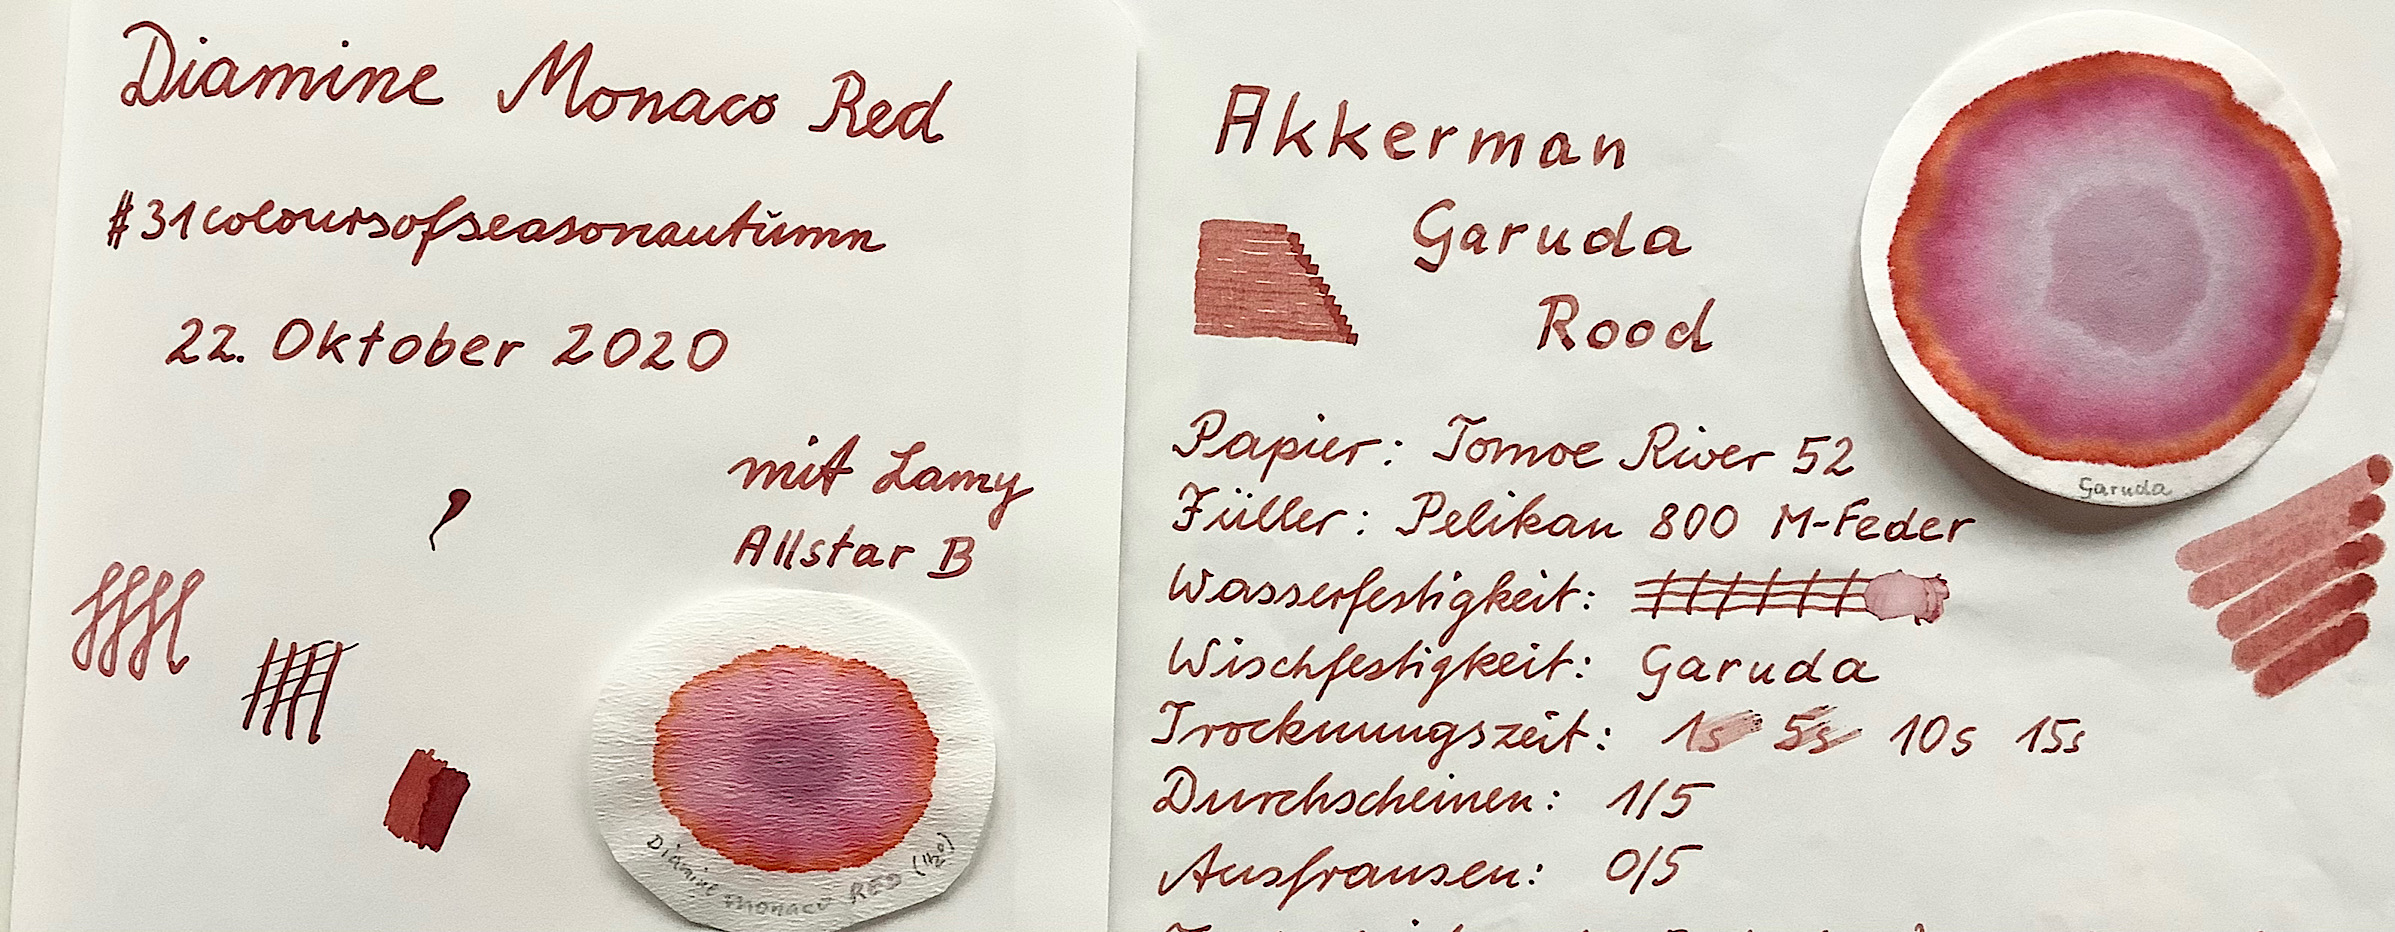 Diamine Monaco Red
#31coloursofseasonautumn
22. Oktober 2020
mit Lamy
Allstar B
Diamine Monaco RED (H²O)
Akkerman
Garuda
Rood
Garuda
Papier: Tomoe River 52
Füller: Pelikan 800 M-Feder
Wasserfestigkeit:
Wischfestigkeit: Garuda
Trocknungszeit: 1s 5s 10s 15s
Durchscheinen: 1/5
Ausfransen: 0/5